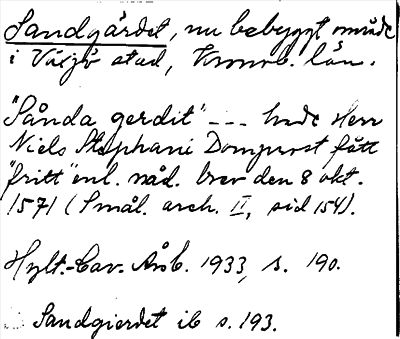 Sandgärdet, nu bebyggt område
i Växjö stad, Kronob. län.
"Sånda gerdit" --- hade Herr
Niels Stephani Domprost fått
"fritt" enl. nåd. brev den 8 okt.
1571 (Smål. arch. II, sid 154).
Hylt.-Cav. Årsb. 1933, s. 190.
Sandgierdet ib s. 193.